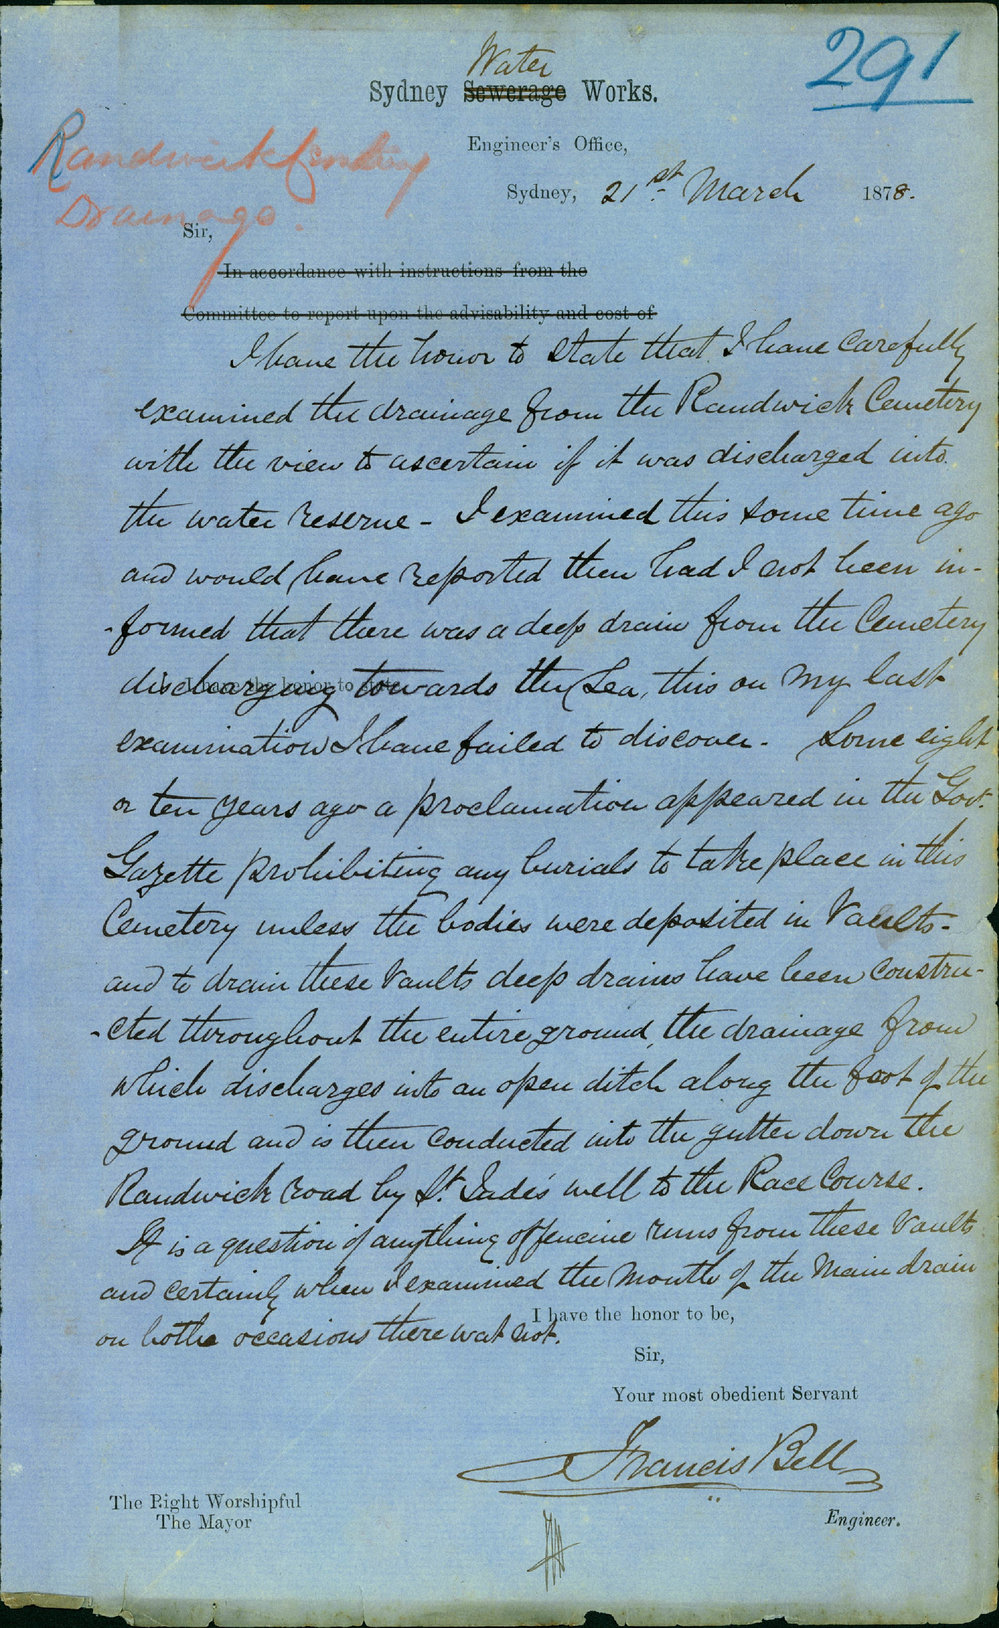 291
Water
Sydney Sewerage Works.
Engineer's Office,
Randwick Cemetery
Drainage.
Sydney, 21st March 1878.
Sir,
In accordance with instructions from the
Committee to report upon the advisability and cost of
I have the honor to state that I have carefully
examined the drainage from the Randwick Cemetery
with the view to ascertain if it was discharged into
the water reserve - I examined this some time ago
and would have reported then had I not been in-
-formed that there was a deep drain from the Cemetery
I have the honor to state
discharging towards the Sea, this on my last
examination I have failed to discover. Some eight
or ten years ago a proclamation appeared in the Govt.
Gazette prohibiting any burials to take place in this
Cemetery unless the bodies were deposited in Vaults-
and to drain these Vaults deep drains have been constru-
-cted throughout the entire ground, the drainage from
which discharges into an open ditch along the foot of the
ground and is then conducted into the gutter down the
Randwick road by St. Jude's well to the Race Course.
It is a question if anything offencive runs from these Vaults
and certainly when I examined the mouth of the Main drain
on bothe occasions there wat not.
I have the honor to be,
Sir,
Your most obedient Servant
Francis Bell
Engineer.
The Right Worshipful
The Mayor